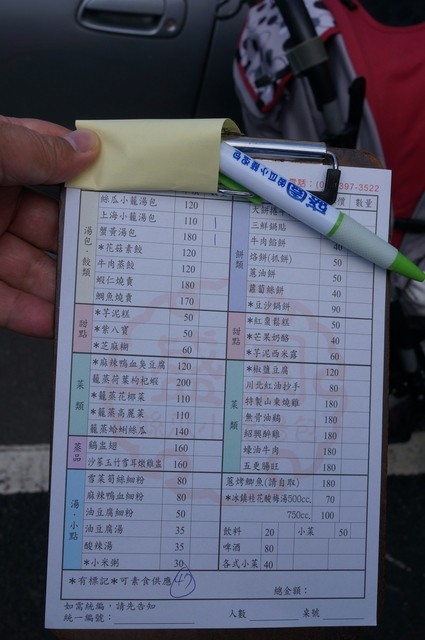 絲瓜小籠湯包
電話：(0
397-3522
絲瓜小籠湯包 120
上海小籠湯包 110 |
蟹黃湯包 180 |
*花菇素餃 120
牛肉蒸餃 120
蝦仁燒賣 180
鯛魚燒賣 170
湯包．餃類
*芋泥糕 50
*紫八寶 50
*芝麻糊 60
甜點
*麻辣鴨血臭豆腐 120
籠蒸荷葉枸杞蝦 200
*籠蒸花椰菜 110
*籠蒸高麗菜 110
籠蒸蛤蜊絲瓜 140
菜類
鷄盅翅 160
沙蔘玉竹雪耳燉雞盅 160
蒸品
雪菜筍絲細粉 80
麻辣鴨血細粉 80
油豆腐細粉 50
油豆腐湯 35
酸辣湯 35
*小米粥 30
湯．小點
價 數量
大餅捲牛
三鮮鍋貼
牛肉餡餅 40
烙餅(抓餅) 50
蔥油餅 50
蘿蔔絲餅 40
*豆沙鍋餅 90
餅類
*紅棗鬆糕 50
*芒果奶酪 40
*芋泥西米露 60
甜點
*椒鹽豆腐 120
川北紅油抄手 80
特製山東燒雞 180
無骨油鷄 180
紹興醉雞 180
蠔油牛肉 180
五更腸旺 180
菜類
蔥烤鯽魚(請自取) 180
*冰鎮桂花酸梅湯500cc, 70
750cc, 100
飲料 20 小菜 50
啤酒 80
各式小菜 40
*有標記*可素食供應 47
總金額：
如需統編，請先告知
統一編號： 人數 桌號